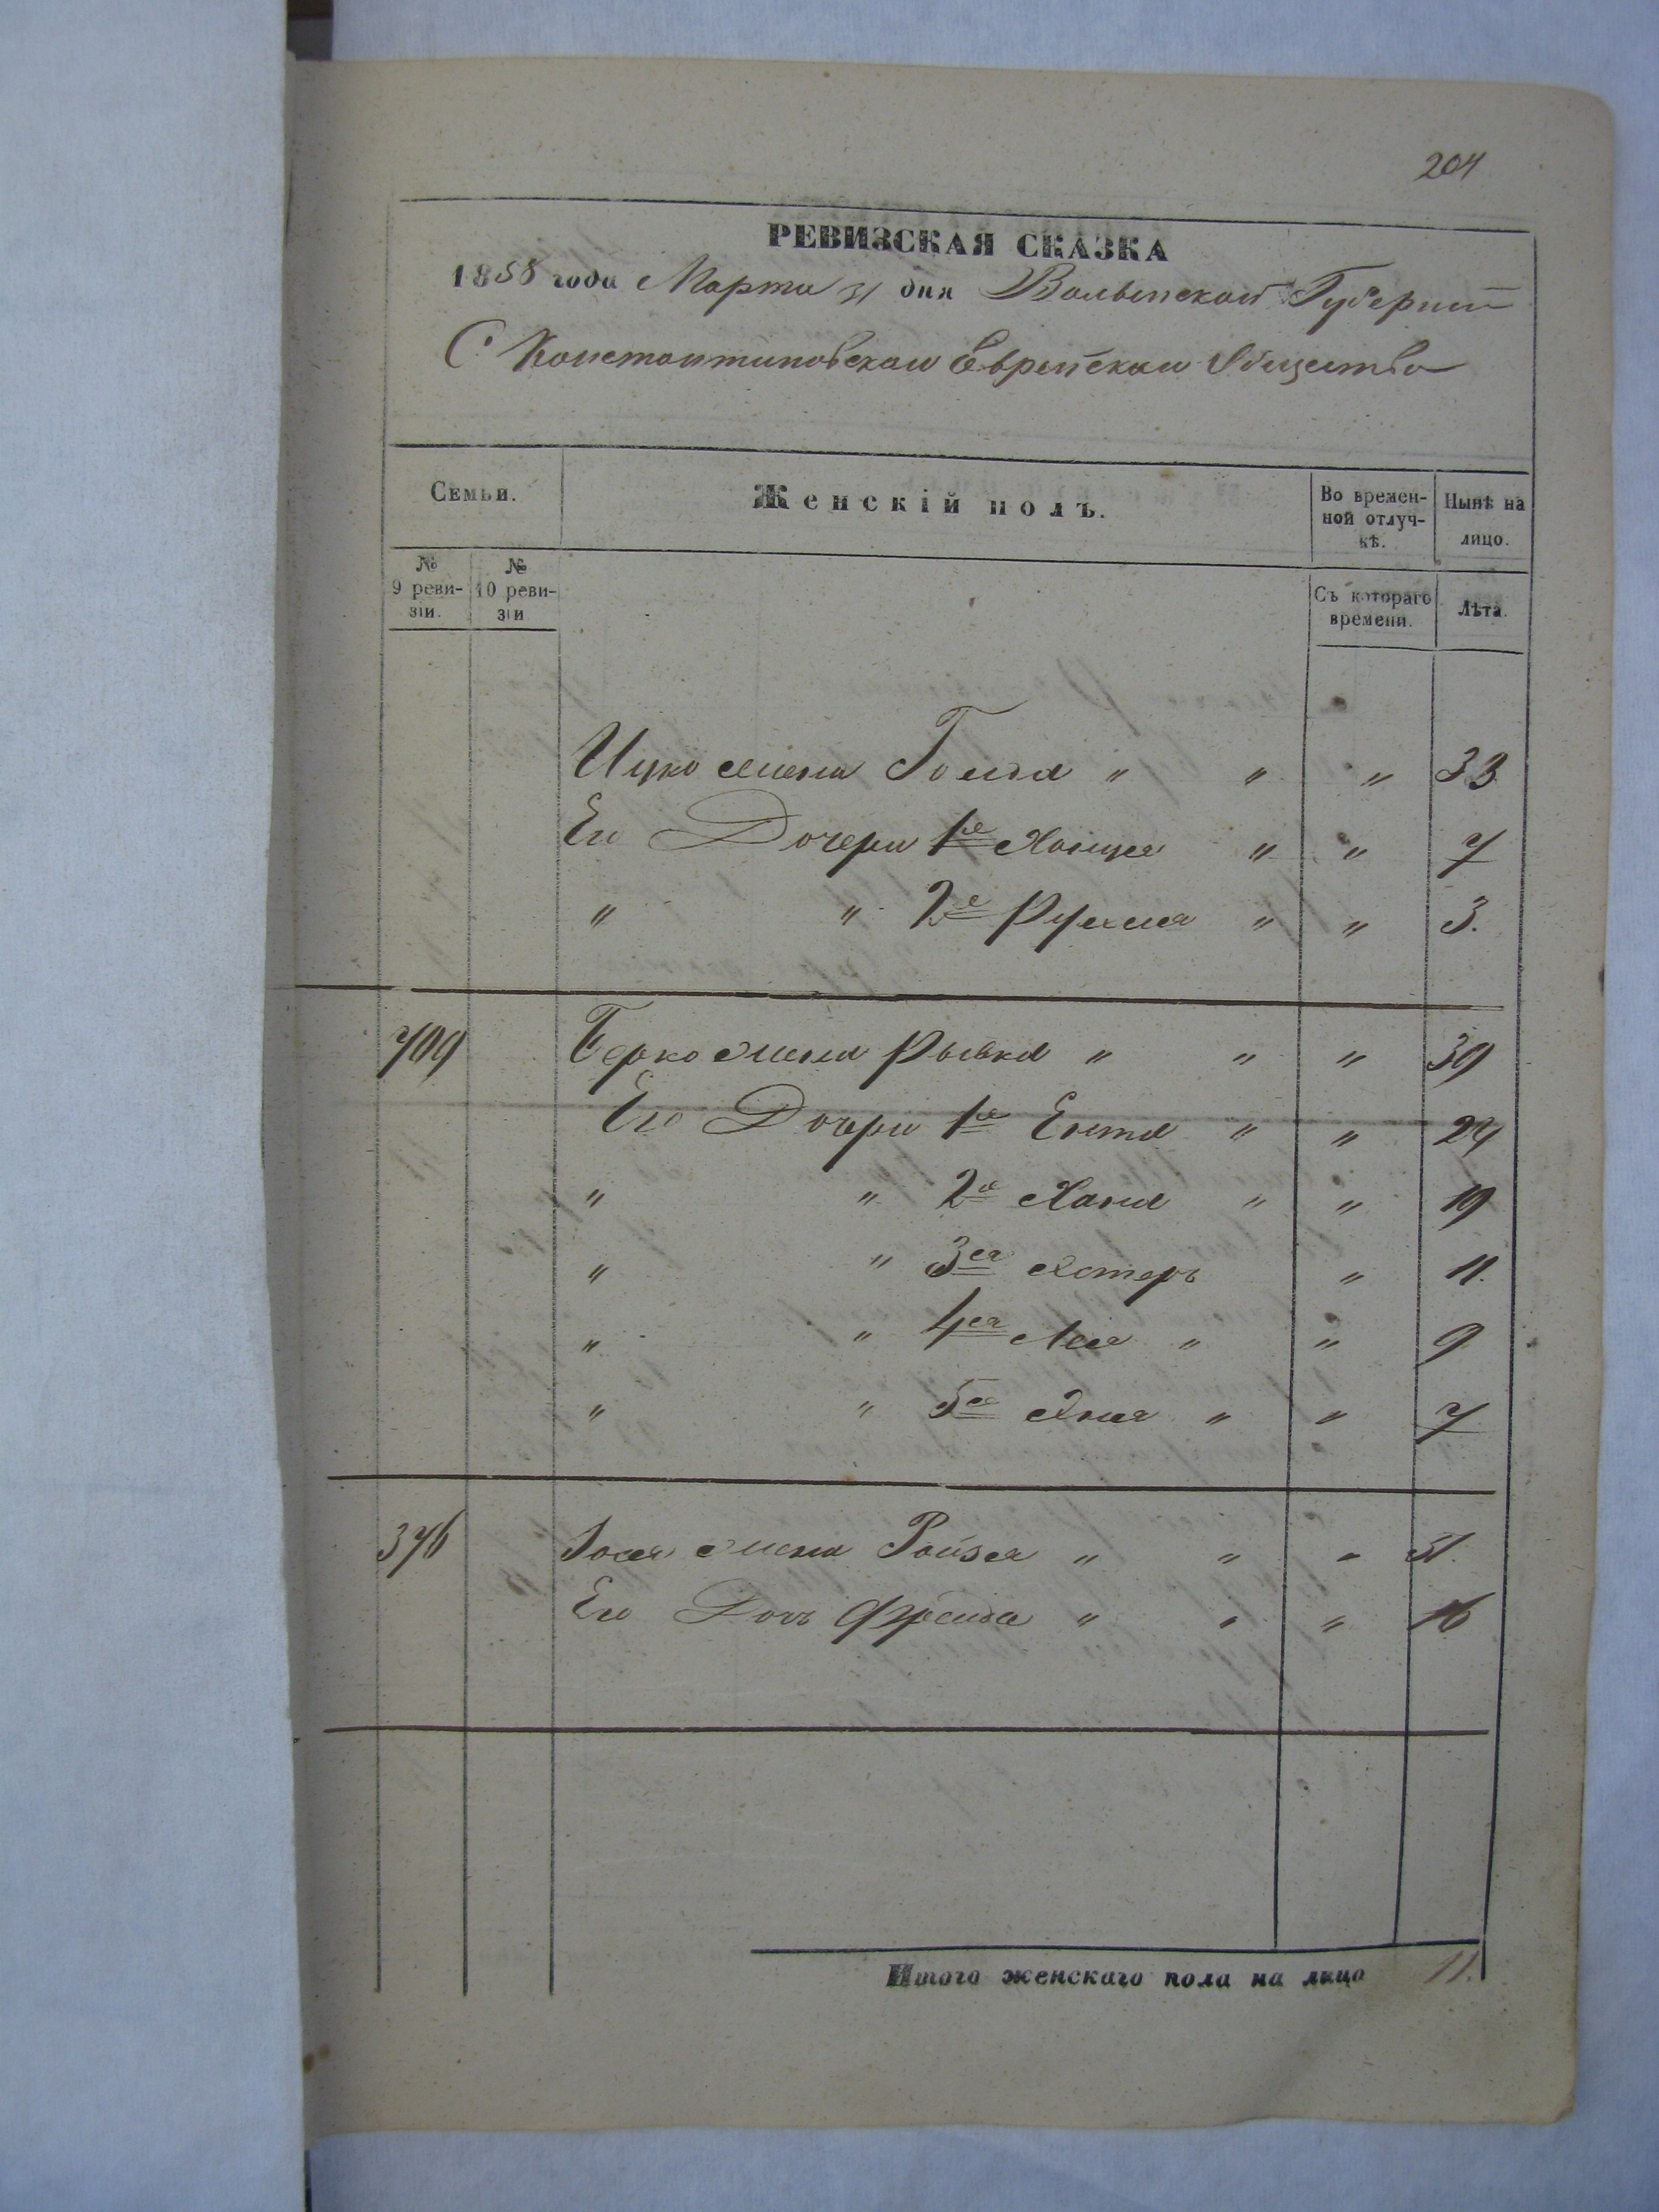 204
РЕВИЗСКАЯ СКАЗКА
1858 года Марта 31 дня Волынской Губернии
С. Константиновскаи Еврейскаи Общества
Семьи. Женскій полъ. Во времен- Нынѣ на
ной отлуч- лицо.
кѣ.
№ № Съ котораго Лѣта.
9 реви- 10 реви- времени.
зіи. зіи
Ицко жена Голда " " " 33
Его Дочери 1я Хаица " " 7
" " 2я Рухля " " 3.
709 Берко жена Рывка " " " 39
Его Дочери 1я Ента " " 24
" " 2я Хана " " 19
" " 3я Эстеръ " 11.
" " 4я Лея " " 9
" " 5я Хая " " 7
376 Іося жена Ройзя " " " 51.
Его Дочь Фрейда " " " 16
Итого женскаго пола на лицо 11.